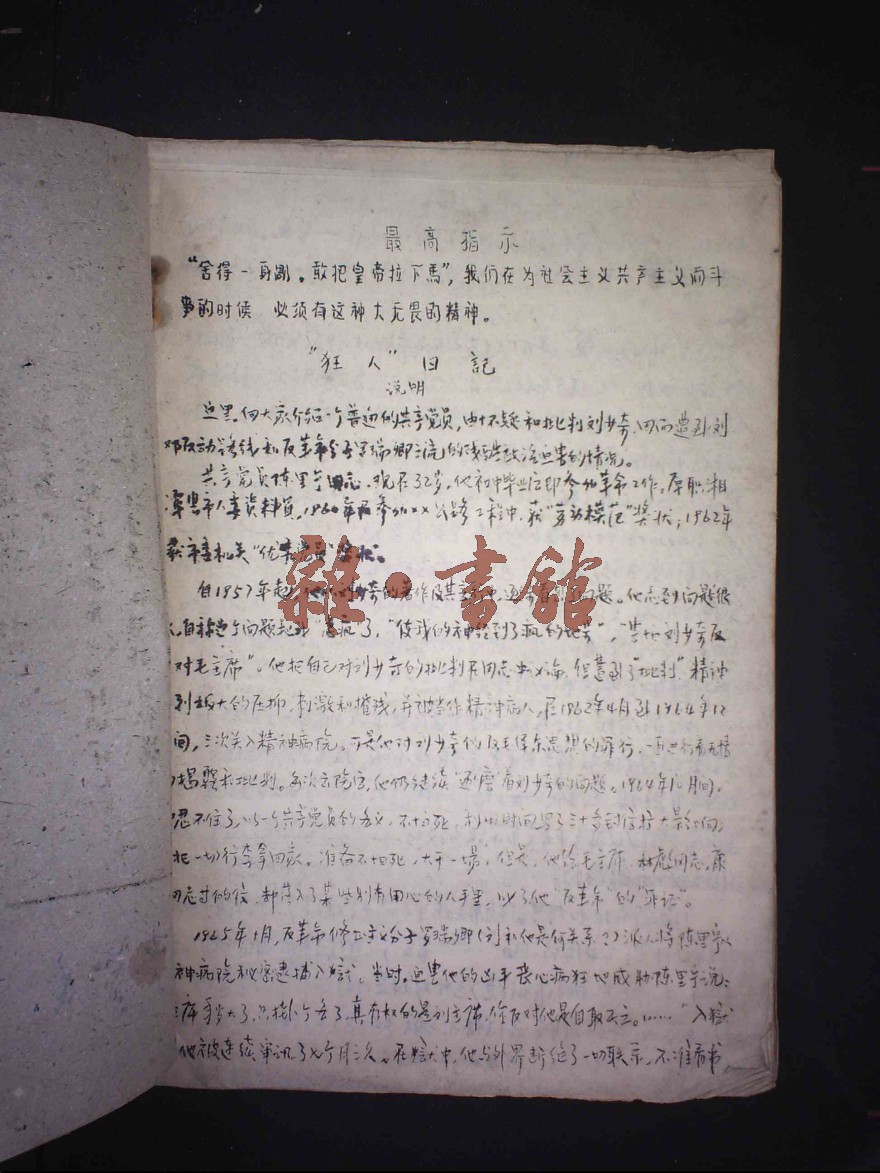 最高指示
“舍得一身剮。敢把皇帝拉下馬”，我们在为社会主义共产主义而斗
争的时候 必须有这种大无畏的精神。
“狂人”日記
说明
这里,向大家介绍一个普通的共产党员,由于怀疑和批判刘少奇,因而遭到刘
邓反动路线和反革命分子罗瑞卿之流的残酷政治迫害的情况。
共产党员陈里宁同志,现在32岁,他初中毕业后即参加革命工作。原职湘
潭
市人委资料员,1960年
参加××公路工程中,获“劳动模范”奖状;1962年
获市直机关“优秀党员”奖状。
自1957年起,他
刘少奇的著作及其
问题。他感到问题很
大,自
问题
“疯”了,“使我的神经到了疯的地步”,“
刘少奇反
对毛主席”。他把自己对刘少奇的批判
同志
议论,但遭到了“批判”,精神
到极大的压抑,刺激和摧残,并被当作精神病人,在1962年4月到1964年12
间,三次关入精神病院。可是他对刘少奇的反毛泽东思想的罪行,一直进行着无情
揭发和批判。每次出院后,他仍继续“琢磨”着刘少奇的问题。1964年10月间,
忍不住了,以一个共产党员的名义,不怕死,利用时间写了三十多封信
把一切行李拿回家。准备不怕死,大干一场,但是,他给毛主席、林彪同志,康
同志等的信,却落入了某些别有用心的人手里,成了他“反革命”的“罪证”。
1965年1月,反革命修正主义分子罗瑞卿(刘和他是何关系?)派人将陈里宁从
神病院秘密逮捕入狱。当时,迫害他的凶手丧心病狂地威胁陈里宁说:
主席年岁大了,只挂个名了,真有权的是刘主席,你反对他是自取灭亡。……”入狱
他被连续审讯了七个月之久。在狱中,他与外界断绝了一切联系,不准看书
雜·書館